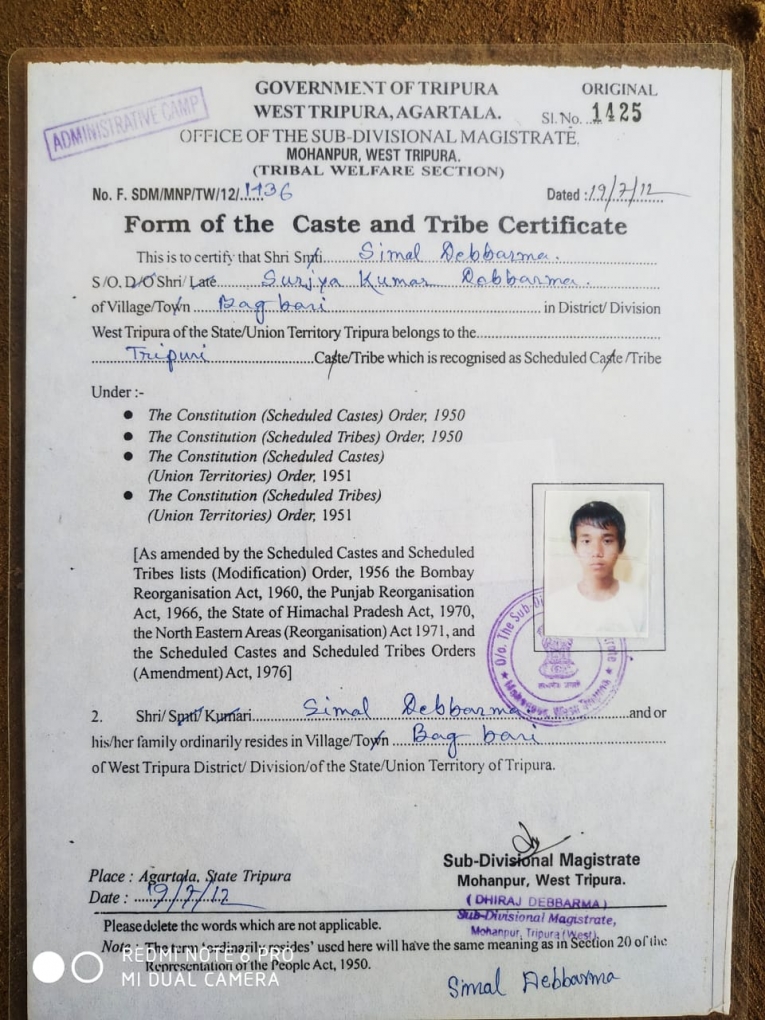 GOVERNMENT OF TRIPURA
ORIGINAL
WEST TRIPURA, AGARTALA.
Sl. No. ...1425
ADMINISTRATIVE CAMP
OFFICE OF THE SUB-DIVISIONAL MAGISTRATE.
MOHANPUR, WEST TRIPURA.
(TRIBAL WELFARE SECTION)
No. F. SDM/MNP/TW/12/......1136
Dated :19/7/12
Form of the Caste and Tribe Certificate
This is to certify that Shri Smti.... Simal Debbarma.
S/O. D/O Shri/ Late........ Surjya Kumar Debbarma.
of Village/Town ... Bag bari ........ in District/ Division
West Tripura of the State/Union Territory Tripura belongs to the........
........ Tripuri ........ Caste/Tribe which is recognised as Scheduled Caste /Tribe
Under :-
● The Constitution (Scheduled Castes) Order, 1950
● The Constitution (Scheduled Tribes) Order, 1950
● The Constitution (Scheduled Castes)
(Union Territories) Order, 1951
● The Constitution (Scheduled Tribes)
(Union Territories) Order, 1951
[As amended by the Scheduled Castes and Scheduled
Tribes lists (Modification) Order, 1956 the Bombay
Reorganisation Act, 1960, the Punjab Reorganisation
Act, 1966, the State of Himachal Pradesh Act, 1970,
the North Eastern Areas (Reorganisation) Act 1971, and
the Scheduled Castes and Scheduled Tribes Orders
(Amendment) Act, 1976]
O/o. The Sub-Di
Mohanpur, West Tripura
2. Shri/ Smti/ Kumari........ Simal Debbarma ........and or
his/her family ordinarily resides in Village/Town ... Bag bari ........
of West Tripura District/ Division/of the State/Union Territory of Tripura.
Sub-Divisional Magistrate
Mohanpur, West Tripura.
Place : Agartala, State Tripura
Date : ..19/7/12
(DHIRAJ DEBBARMA)
Sub-Divisional Magistrate,
Mohanpur, Tripura (West).
Please delete the words which are not applicable.
Note : The term 'ordinarily resides' used here will have the same meaning as in Section 20 of the
Representation of the People Act, 1950.
Simal Debbarma
REDMI NOTE 6 PRO
MI DUAL CAMERA